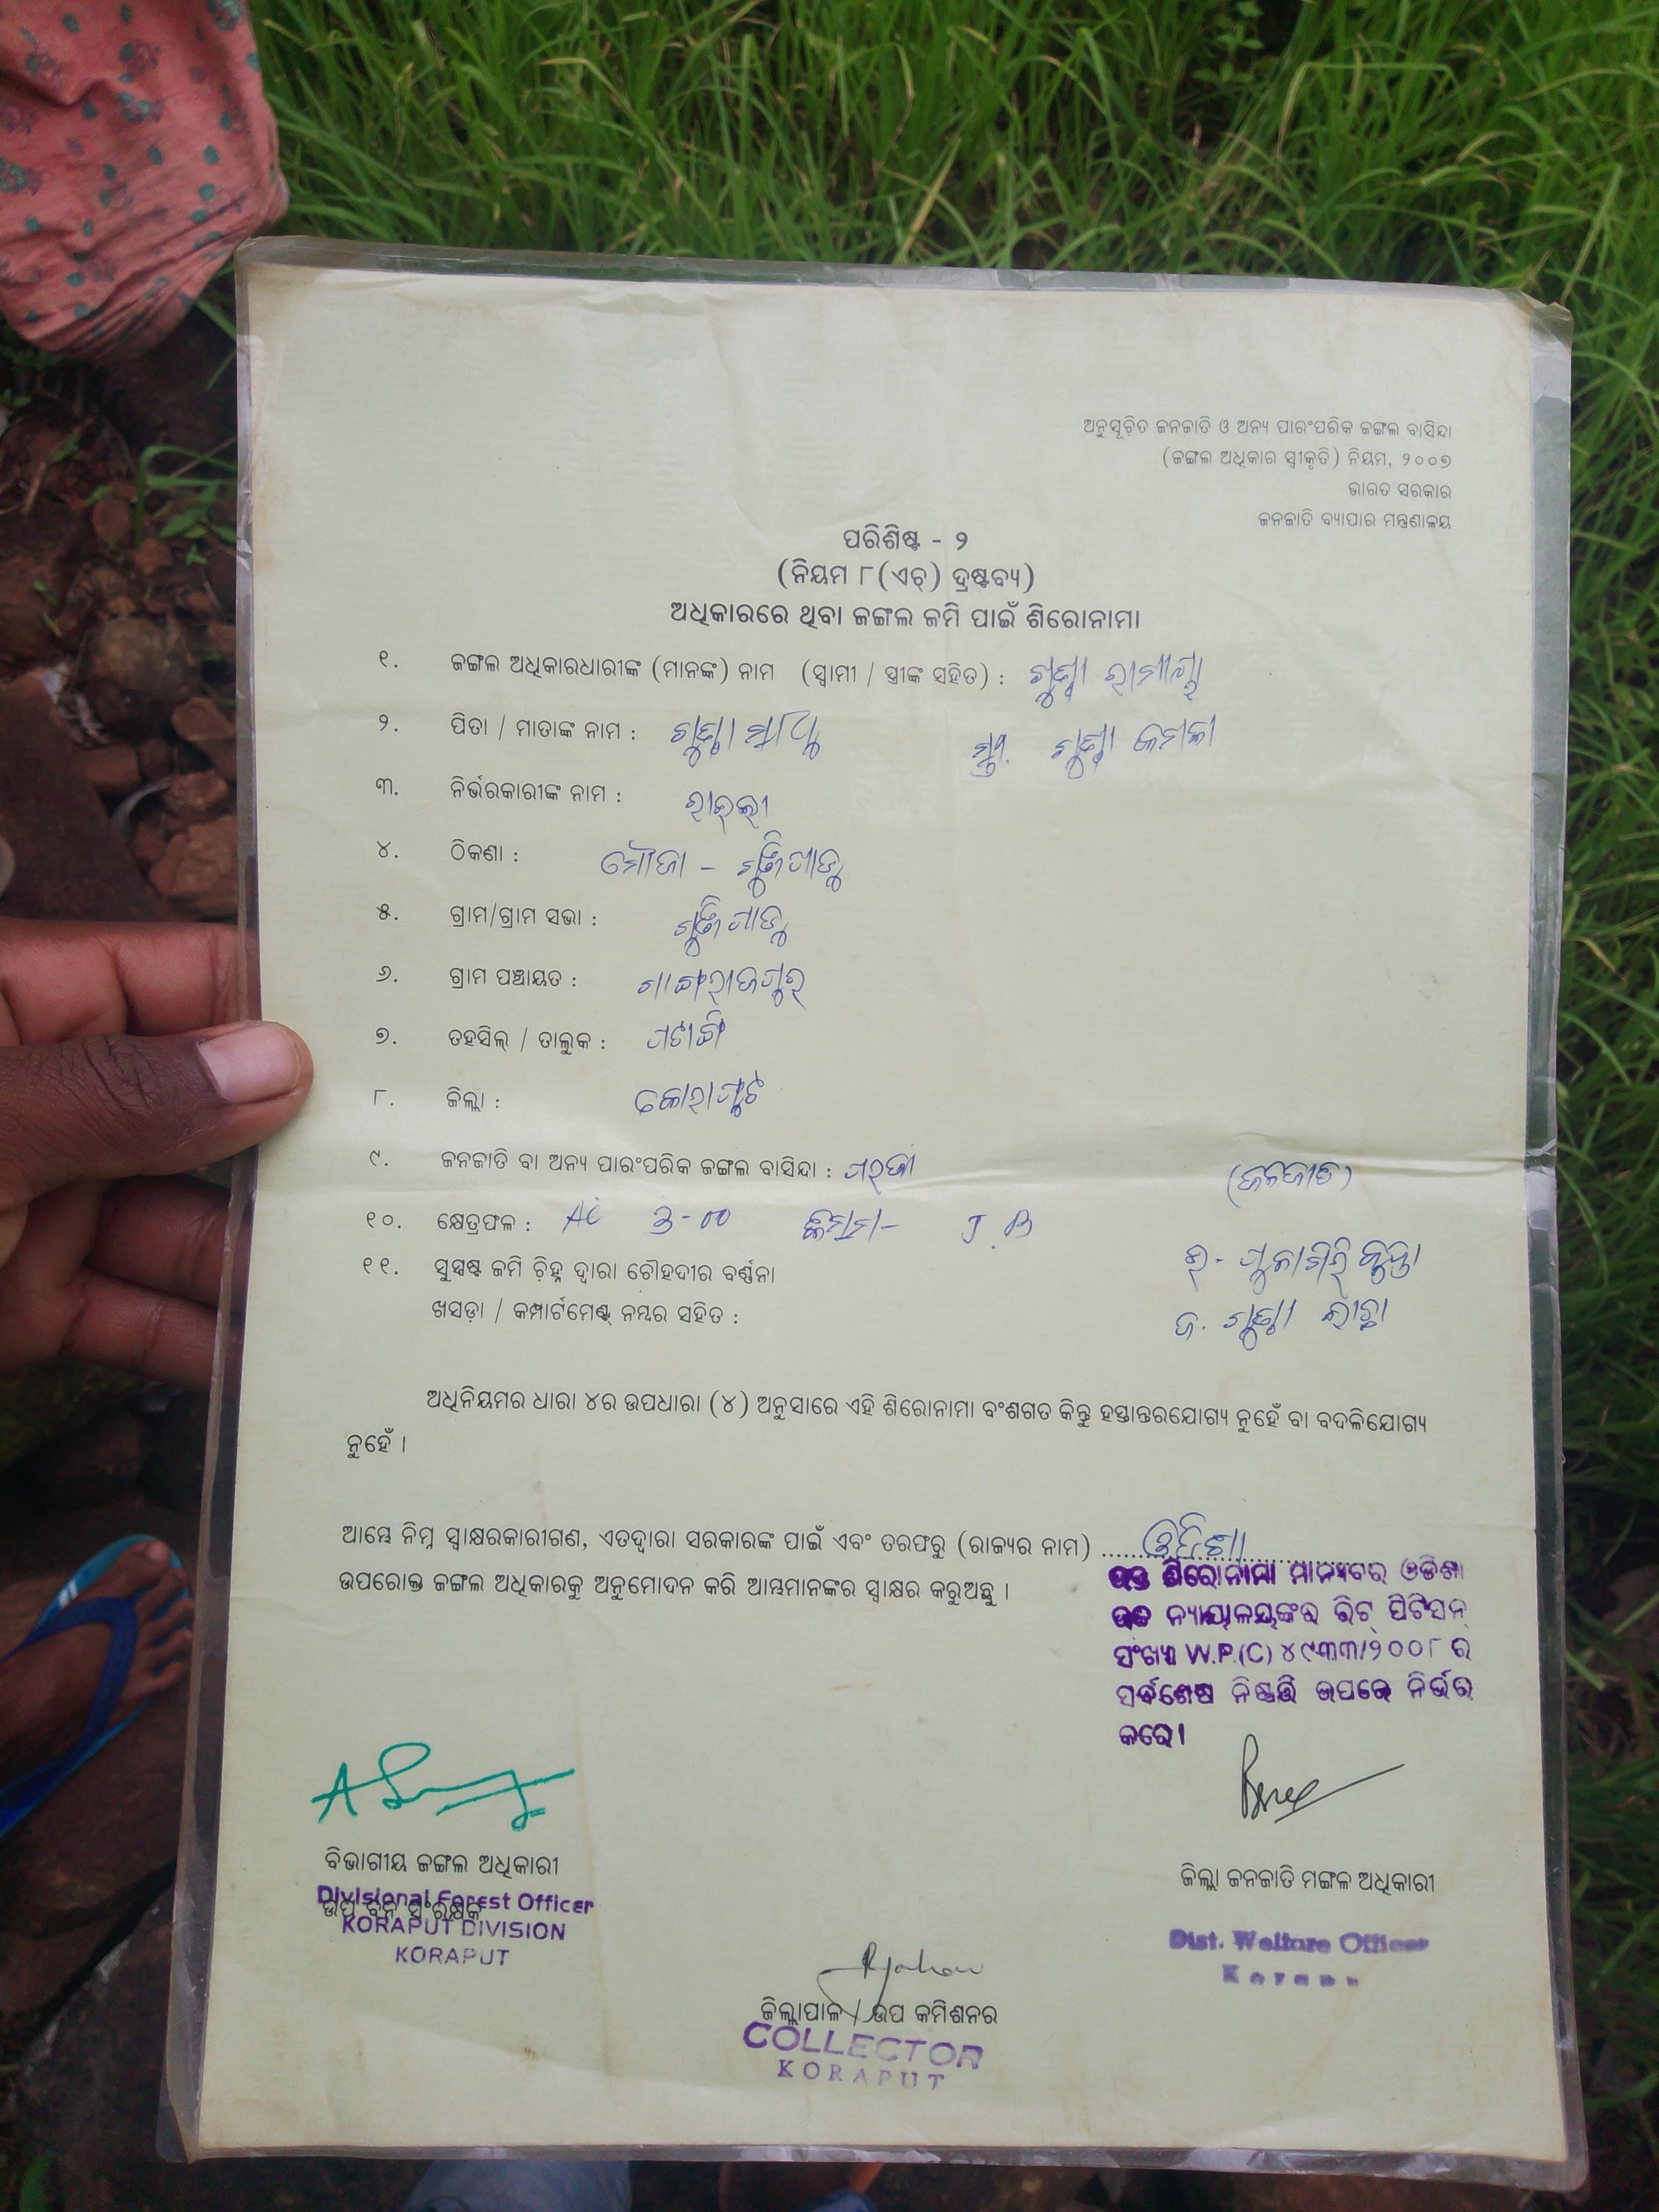 ଅନୁସୂଚିତ ଜନଜାତି ଓ ଅନ୍ୟ ପାରଂପରିକ ଜଙ୍ଗଲ ବାସିନ୍ଦା
(ଜଙ୍ଗଲ ଅଧିକାର ସ୍ୱୀକୃତି) ନିୟମ, ୨୦୦୭
ଭାରତ ସରକାର
ଜନଜାତି ବ୍ୟାପାର ମନ୍ତ୍ରଣାଳୟ
ପରିଶିଷ୍ଟ - ୨
(ନିୟମ ୮(ଏଚ୍) ଦ୍ରଷ୍ଟବ୍ୟ)
ଅଧିକାରରେ ଥିବା ଜଙ୍ଗଲ ଜମି ପାଇଁ ଶିରୋନାମା
୧. ଜଙ୍ଗଲ ଅଧିକାରଧାରୀଙ୍କ (ମାନଙ୍କ) ନାମ (ସ୍ୱାମୀ / ସ୍ତ୍ରୀଙ୍କ ସହିତ) :
୨. ପିତା / ମାତାଙ୍କ ନାମ :
୩. ନିର୍ଭରକାରୀଙ୍କ ନାମ : ରାଇଲୀ
୪. ଠିକଣା : ମୌଜା -
୫. ଗ୍ରାମ/ଗ୍ରାମ ସଭା :
୬. ଗ୍ରାମ ପଞ୍ଚାୟତ :
୭. ତହସିଲ୍ / ତାଲୁକ : ପଟାଙ୍ଗି
୮. ଜିଲ୍ଲା : କୋରାପୁଟ
୯. ଜନଜାତି ବା ଅନ୍ୟ ପାରଂପରିକ ଜଙ୍ଗଲ ବାସିନ୍ଦା : ପରଜା (ଜନଜାତି)
୧୦. କ୍ଷେତ୍ରଫଳ : AC 3-00 କିସମ- J.B
୧୧. ସୁସ୍ପଷ୍ଟ ଜମି ଚିହ୍ନ ଦ୍ୱାରା ଚୌହଦୀର ବର୍ଣ୍ଣନା
ଖସଡ଼ା / କମ୍ପାର୍ଟମେଣ୍ଟ୍ ନମ୍ବର ସହିତ :
ଅଧିନିୟମର ଧାରା ୪ର ଉପଧାରା (୪) ଅନୁସାରେ ଏହି ଶିରୋନାମା ବଂଶଗତ କିନ୍ତୁ ହସ୍ତାନ୍ତରଯୋଗ୍ୟ ନୁହେଁ ବା ବଦଳିଯୋଗ୍ୟ
ନୁହେଁ ।
ଆମ୍ଭେ ନିମ୍ନ ସ୍ୱାକ୍ଷରକାରୀଗଣ, ଏତଦ୍ୱାରା ସରକାରଙ୍କ ପାଇଁ ଏବଂ ତରଫରୁ (ରାଜ୍ୟର ନାମ) ଓଡିଶା
ଉପରୋକ୍ତ ଜଙ୍ଗଲ ଅଧିକାରକୁ ଅନୁମୋଦନ କରି ଆମ୍ଭମାନଙ୍କର ସ୍ୱାକ୍ଷର କରୁଅଛୁ ।
ଉକ୍ତ ଶିରୋନାମା ମାନ୍ୟବର ଓଡିଶା
ଉଚ୍ଚ ନ୍ୟାୟାଳୟଙ୍କର ରିଟ୍ ପିଟିସନ୍
ସଂଖ୍ୟା W.P.(C) ୪୯୩୩/୨୦୦୮ ର
ସର୍ବଶେଷ ନିଷ୍ପତ୍ତି ଉପରେ ନିର୍ଭର
କରେ।
ବିଭାଗୀୟ ଜଙ୍ଗଲ ଅଧିକାରୀ
ଉପ ବନ ସଂରକ୍ଷକ
Divisional Forest Officer
KORAPUT DIVISION
KORAPUT
ଜିଲ୍ଲା ଜନଜାତି ମଙ୍ଗଳ ଅଧିକାରୀ
Dist. Welfare Officer
ଜିଲ୍ଲାପାଳ / ଉପ କମିଶନର
COLLECTOR
KORAPUT